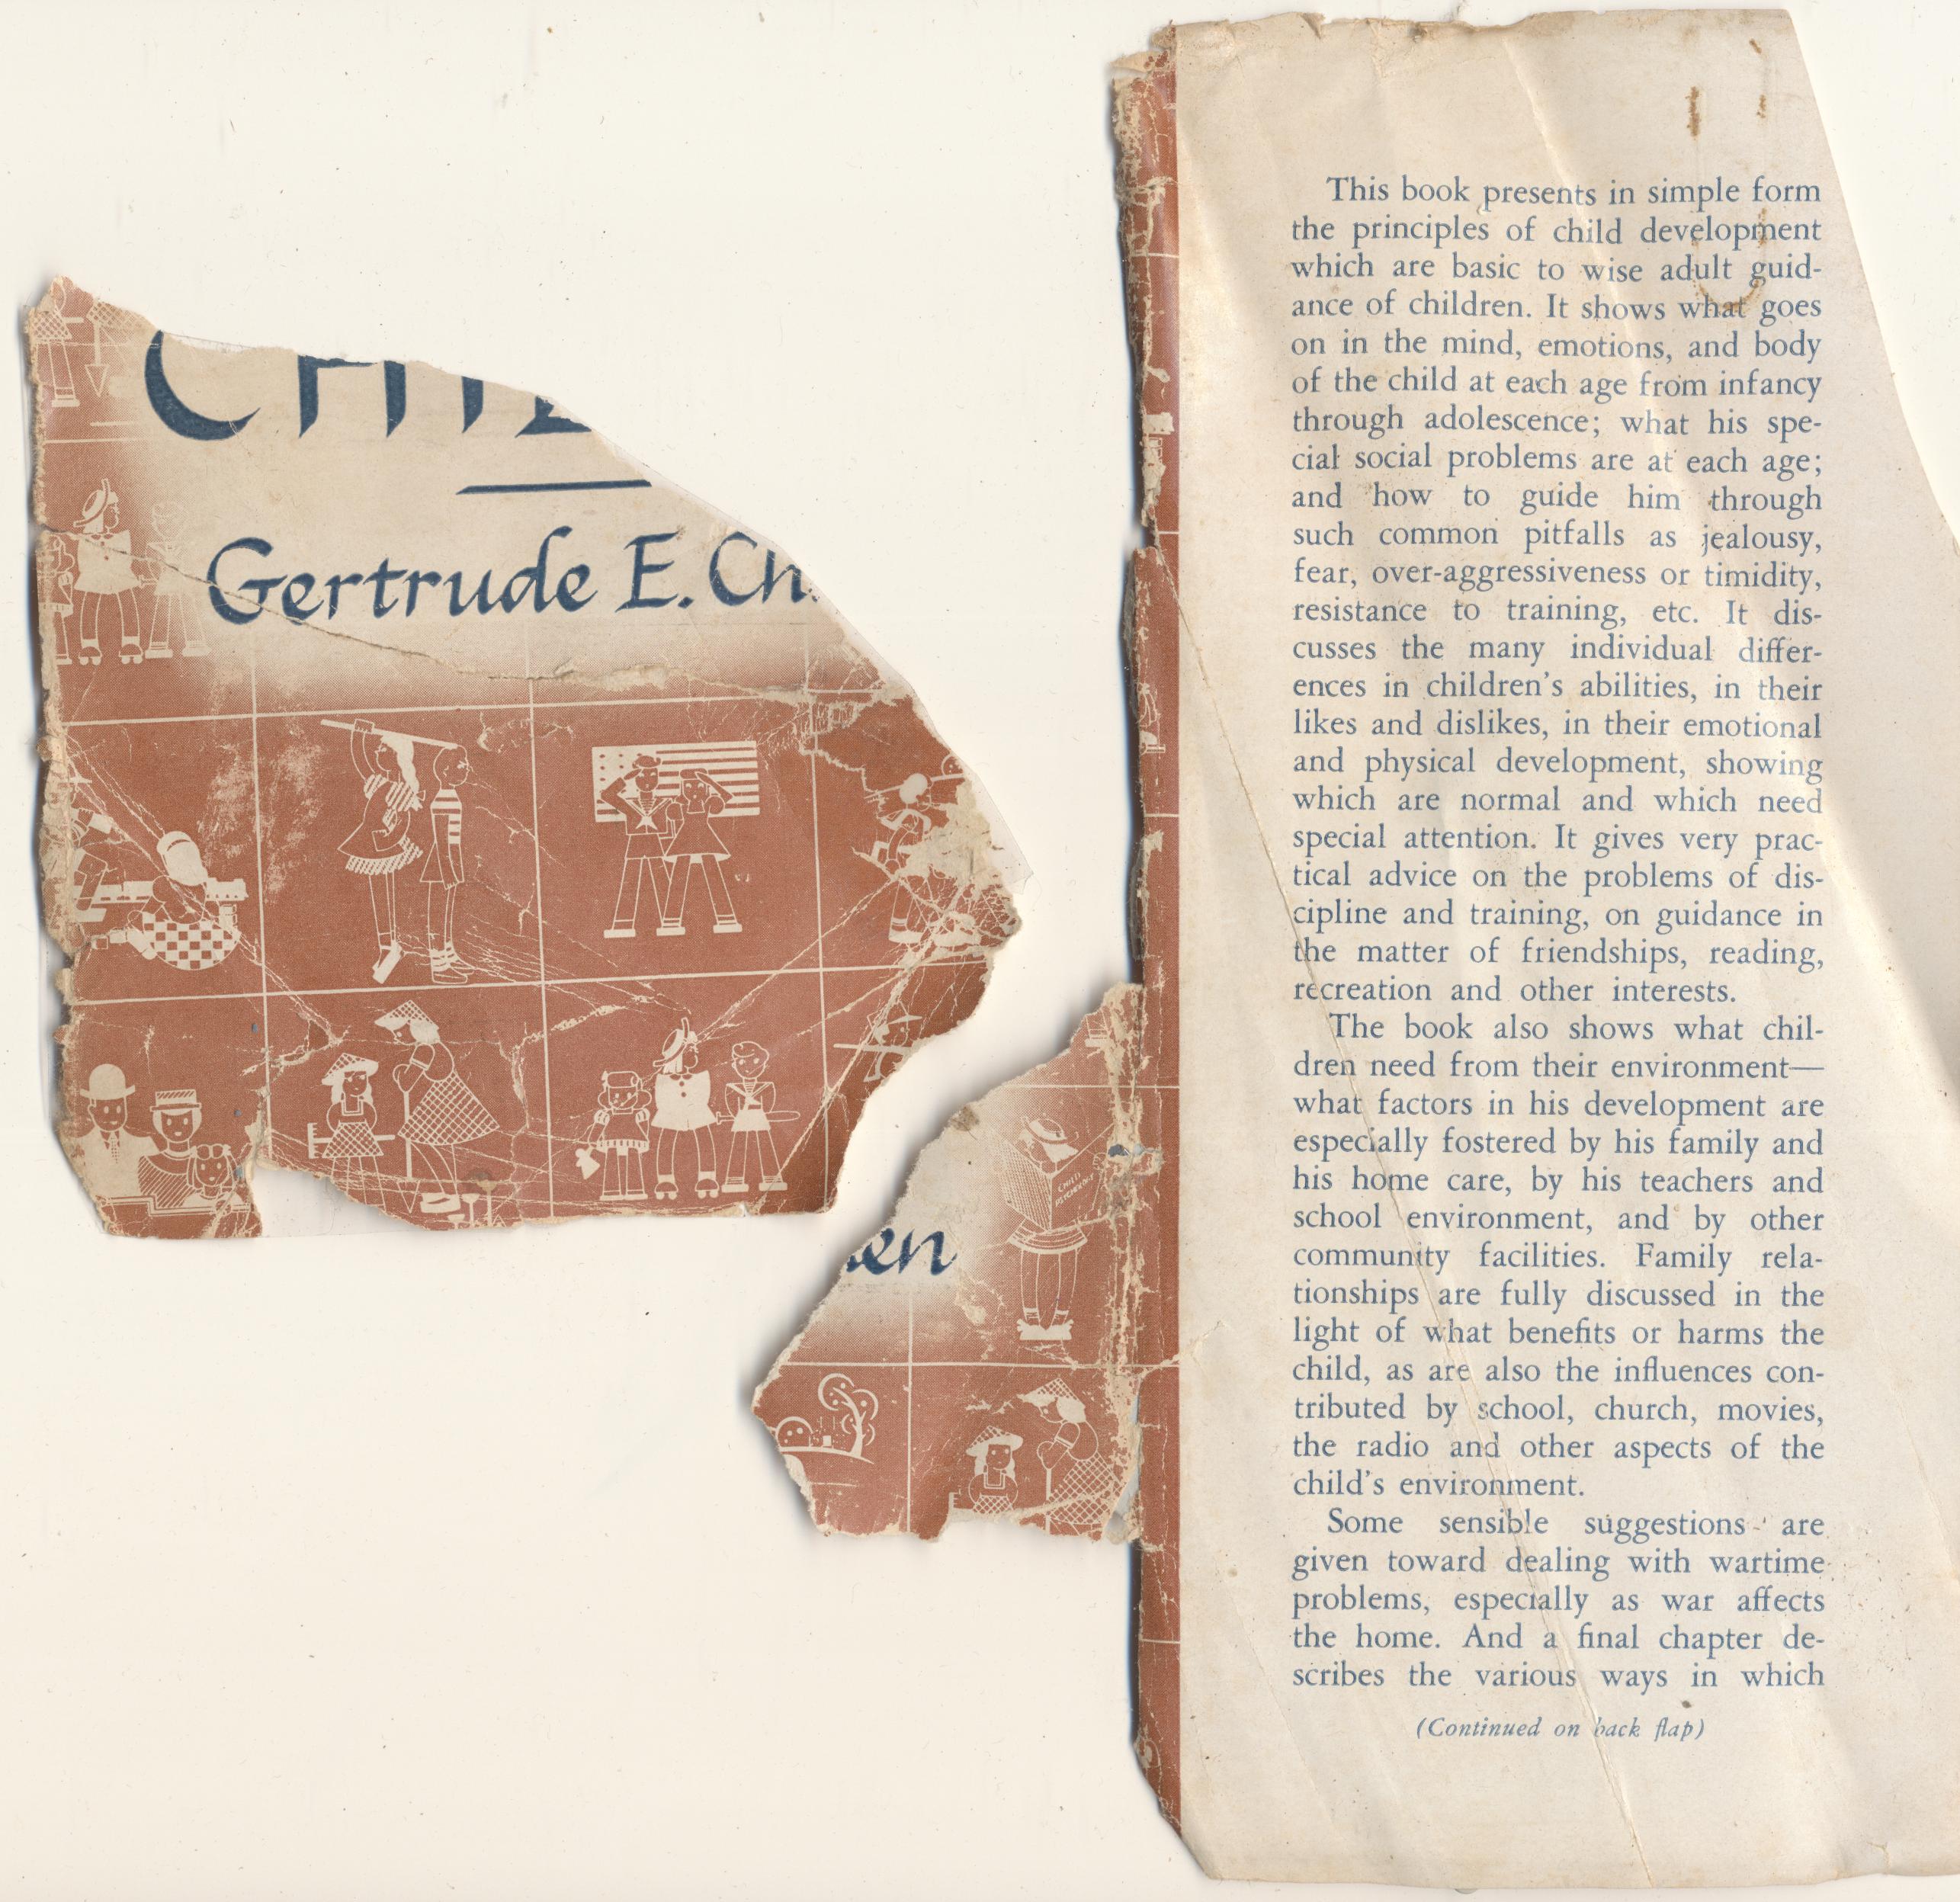 CHIL
Gertrude E. Ch
en
CHILD
PSYCHOLOGY
This book presents in simple form
the principles of child development
which are basic to wise adult guid-
ance of children. It shows what goes
on in the mind, emotions, and body
of the child at each age from infancy
through adolescence; what his spe-
cial social problems are at each age;
and how to guide him through
such common pitfalls as jealousy,
fear, over-aggressiveness or timidity,
resistance to training, etc. It dis-
cusses the many individual differ-
ences in children's abilities, in their
likes and dislikes, in their emotional
and physical development, showing
which are normal and which need
special attention. It gives very prac-
tical advice on the problems of dis-
cipline and training, on guidance in
the matter of friendships, reading,
recreation and other interests.
The book also shows what chil-
dren need from their environment—
what factors in his development are
especially fostered by his family and
his home care, by his teachers and
school environment, and by other
community facilities. Family rela-
tionships are fully discussed in the
light of what benefits or harms the
child, as are also the influences con-
tributed by school, church, movies,
the radio and other aspects of the
child's environment.
Some sensible suggestions are
given toward dealing with wartime
problems, especially as war affects
the home. And a final chapter de-
scribes the various ways in which
(Continued on back flap)